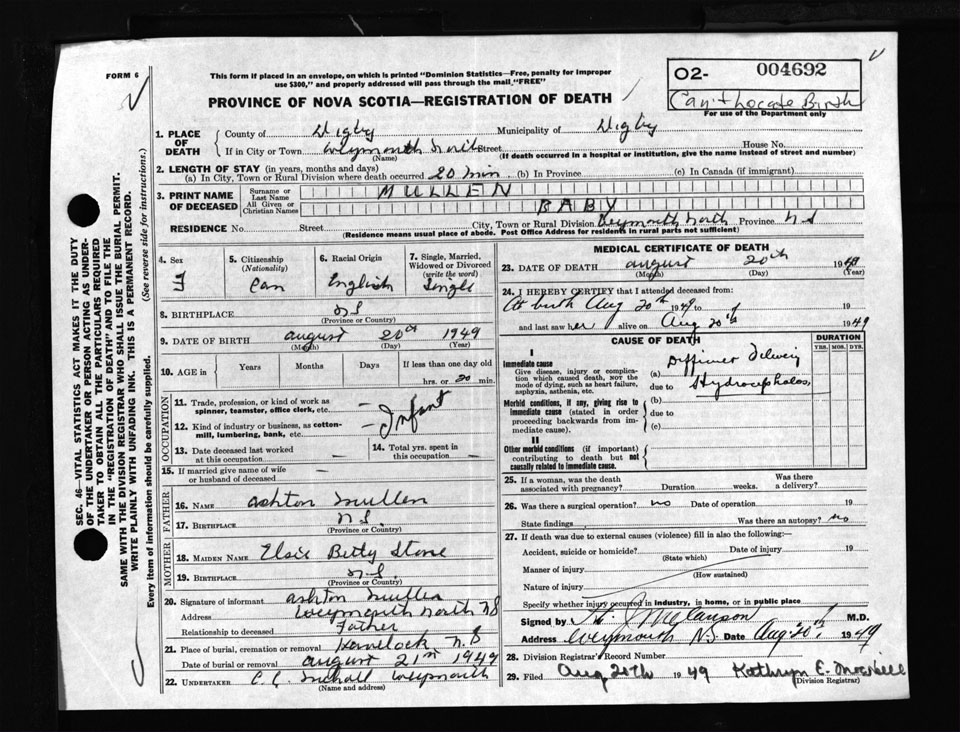 FORM 6
This form if placed in an envelope, on which is printed "Dominion Statistics—Free, penalty for improper
use $300," and properly addressed will pass through the mail "FREE"
O2- 004692
PROVINCE OF NOVA SCOTIA—REGISTRATION OF DEATH
For use of the Department only
1. PLACE OF DEATH
County of Digby Municipality of Digby
If in City or Town Weymouth North Street House No.
(Name) (If death occurred in a hospital or institution, give the name instead of street and number)
2. LENGTH OF STAY (in years, months and days)
(a) In City, Town or Rural Division where death occurred 20 min (b) In Province (c) In Canada (if immigrant)
3. PRINT NAME OF DECEASED
Surname or Last Name MULLEN
All Given or Christian Names BABY
RESIDENCE No. Street City, Town or Rural Division Weymouth North Province N.S
(Residence means usual place of abode. Post Office Address for residents in rural parts not sufficient)
4. Sex F
5. Citizenship (Nationality) Can
6. Racial Origin English
7. Single, Married, Widowed or Divorced (write the word) Single
8. BIRTHPLACE N S
(Province or Country)
9. DATE OF BIRTH August 20th 1949
(Month) (Day) (Year)
10. AGE in Years Months Days If less than one day old
hrs. or 20 min.
OCCUPATION
11. Trade, profession, or kind of work as
spinner, teamster, office clerk, etc. —
Infant
12. Kind of industry or business, as cotton-
mill, lumbering, bank, etc. —
13. Date deceased last worked
at this occupation —
14. Total yrs. spent in
this occupation —
15. If married give name of wife
or husband of deceased —
FATHER
16. Name Ashton Mullen
17. BIRTHPLACE N S.
(Province or Country)
MOTHER
18. MAIDEN NAME Elsie Betty Stone
19. BIRTHPLACE N.S.
(Province or Country)
20. Signature of informant Ashton Mullen
Address Weymouth North NS
Relationship to deceased Father
21. Place of burial, cremation or removal Havelock N.S
Date of burial or removal August 21st 1949
22. UNDERTAKER C. C. Weymouth
(Name and address)
MEDICAL CERTIFICATE OF DEATH
23. DATE OF DEATH August 20th 1949
(Month) (Day) (Year)
24. I HEREBY CERTIFY that I attended deceased from:
At birth Aug 20th 1949 to 19
and last saw her alive on Aug 20th 1949
CAUSE OF DEATH
DURATION
YRS. MOS. DYS.
I
Immediate cause
Give disease, injury or complica-
tion which caused death, NOT the
mode of dying, such as heart failure,
asphyxia, asthenia, etc.
(a)
due to Hydrocephalos
Morbid conditions, if any, giving rise to
immediate cause (stated in order
proceeding backwards from im-
mediate cause).
(b)
due to
(c)
II
Other morbid conditions (if important)
contributing to death but not
causally related to immediate cause.
25. If a woman, was the death
associated with pregnancy? Duration weeks. Was there
a delivery?
26. Was there a surgical operation? no Date of operation 19
State findings Was there an autopsy? no
27. If death was due to external causes (violence) fill in also the following:—
Accident, suicide or homicide? Date of injury 19
(State which)
Manner of injury
(How sustained)
Nature of injury
Specify whether injury occurred in industry, in home, or in public place
Signed by Melanson M.D.
Address Weymouth N.S Date Aug 20th 1949
28. Division Registrar's Record Number
29. Filed Aug 20th 1949 Kathryn E.
(Division Registrar)
SEC. 46—VITAL STATISTICS ACT MAKES IT THE DUTY
OF THE UNDERTAKER OR PERSON ACTING AS UNDER-
TAKER TO OBTAIN ALL THE PARTICULARS REQUIRED
IN THE "REGISTRATION OF DEATH" AND TO FILE THE
SAME WITH THE DIVISION REGISTRAR WHO SHALL ISSUE THE BURIAL PERMIT.
WRITE PLAINLY WITH UNFADING INK. THIS IS A PERMANENT RECORD.
Every item of information should be carefully supplied. (See reverse side for instructions.)